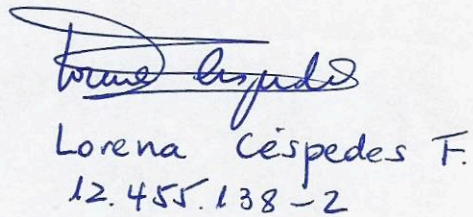 Lorena Céspedes
Lorena Céspedes F.
12.455.138-2